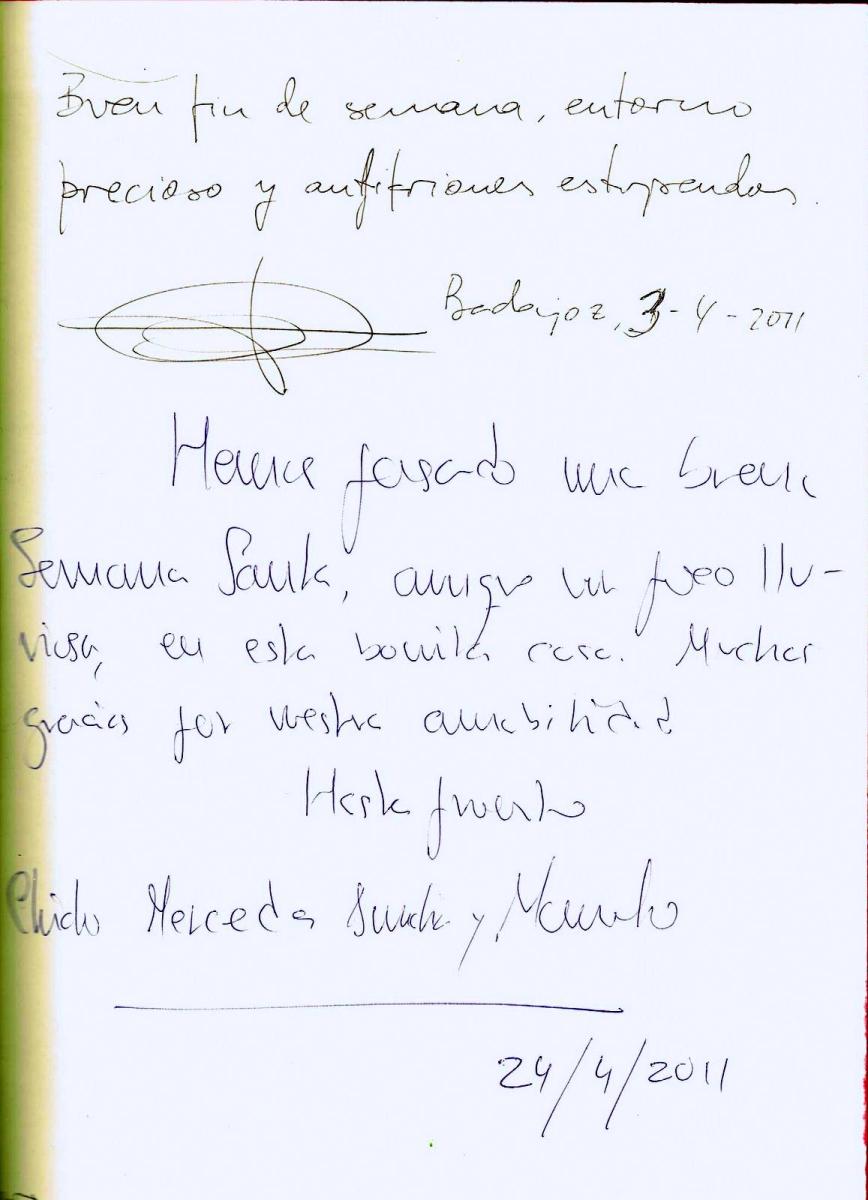 Buen fin de semana, entorno
precioso y anfitriones estupendos.
Badajoz, 3-4-2011
Hemos pasado una buena
Semana Santa, aunque un poco llu-
viosa, en esta bonita casa. Muchas
gracias por vuestra amabilidad
Hasta pronto
Mercedes y Manolo
24/4/2011